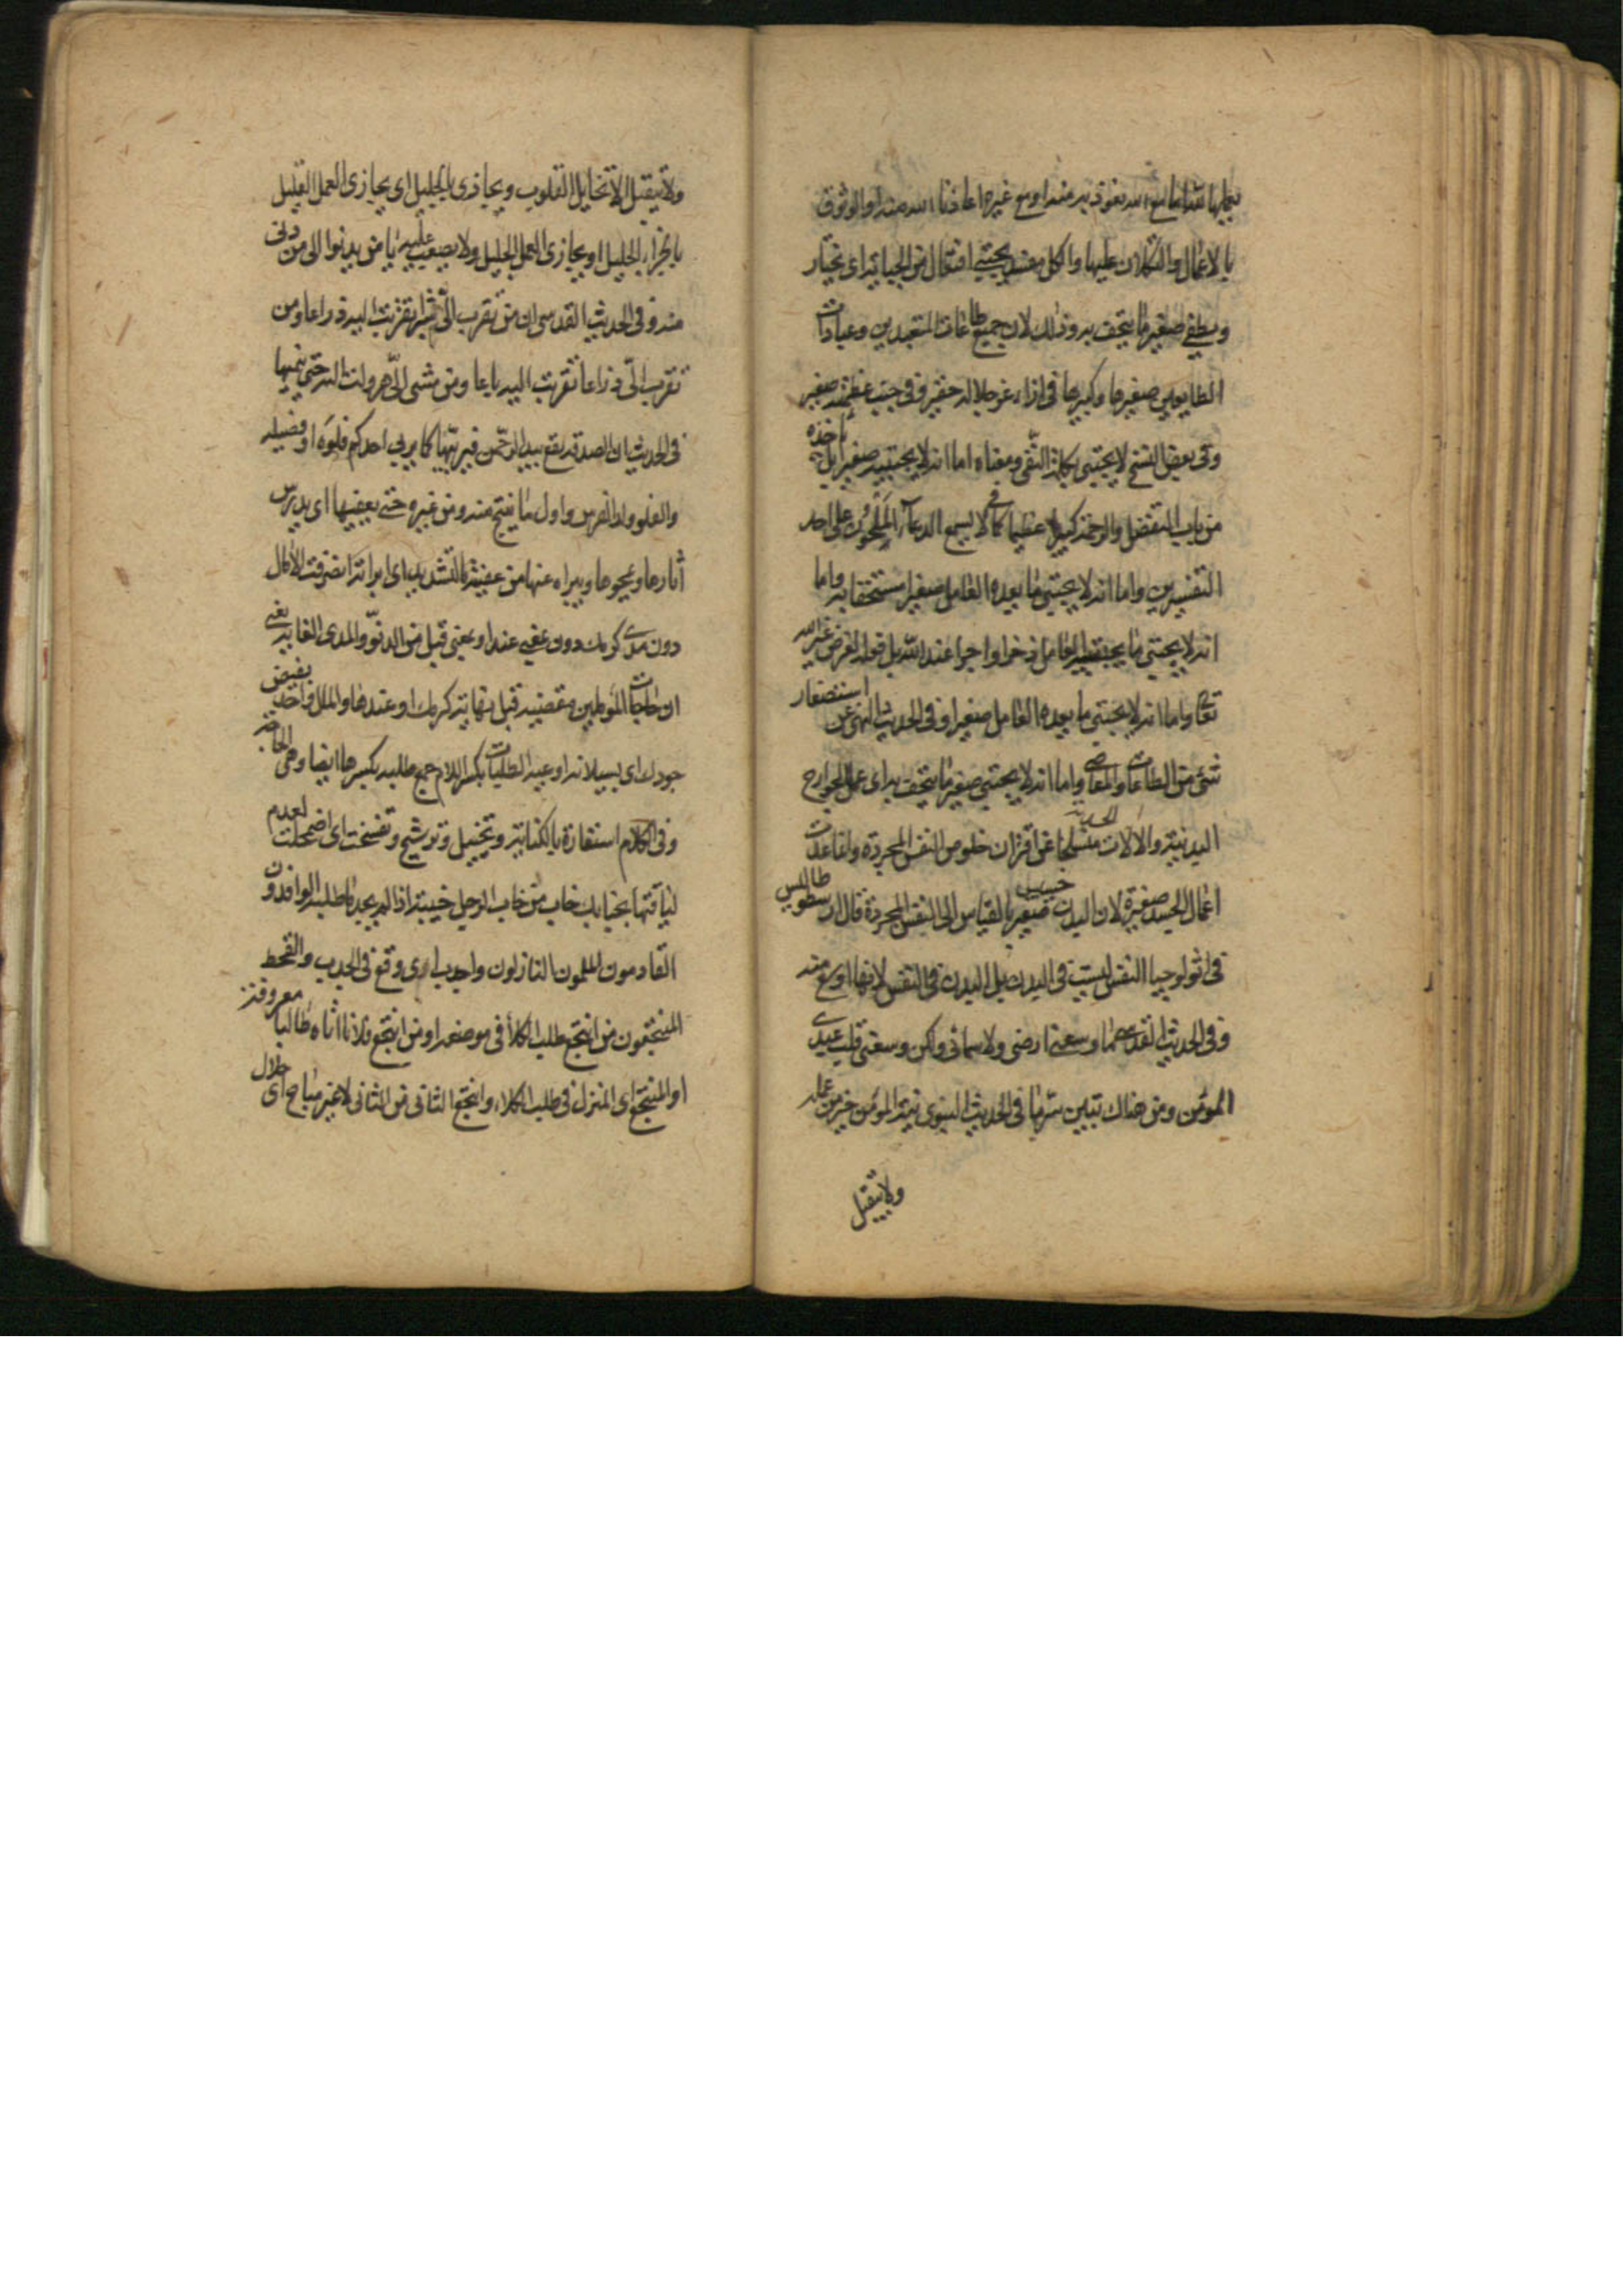 بالاعمال والتكلان عليها والكل مفسد يجتبي افتعال من الجباية اى يختار
ويصطفى صغير ما يتحف به وذلك لان جميع طاعات المتعبدين وعبادات
المطيعين صغيرها وكبيرها فى ازاء عز جلاله حقير وفى جنب عظمته صغير
وفى بعض النسخ لا يجتبى بكلمة النفى ومعناه اما انه لا يجتبيه صغيرا بل ياخذه
من باب التفضل والرحمة كبيرا عظيما كما فى لا يسمع الدعاء الملحون على احد
التفسيرين واما انه لا يجتبى ما يعده العامل صغيرا مستحقرا به واما
انه لا يجتبى ما يجتبيه العامل ذخرا واجرا عند الله بل قوله لغرض غير الله
تعالى واما انه لا يجتبى ما يعده العامل صغيرا وفى الحديث النهى عن استصغار
شئ من الطاعات والمعاصى واما انه لا يجتبى صغير ما يتحف به اى عمل الجوارح
البدنية والالات الجسدية منسلخا عن اقتران خلوص النفس المجردة وانما عدت
اعمال الجسد صغيرة لان البدن خسيس صغير بالقياس الى النفس المجردة قال ارسطوطاليس
فى اثولوجيا النفس ليست فى البدن بل البدن فى النفس لانها اوسع منه
وفى الحديث القدسى ما وسعنى ارضى ولا سمائى ولكن وسعنى قلب عبدى
المؤمن ومن هناك تبين سر ما فى الحديث النبوى نية المؤمن خير من عمله
ولا يتقبل
ولا يتقبل الا نخايل القلوب ويجازى بالجليل اى يجازى العمل القليل
بالجزاء الجليل او يجازى العمل الجليل ولا يصعب عليه يا من يدنوا الى من دنى
منه وفى الحديث القدسى ان من تقرب الى شبرا تقربت اليه ذراعا ومن
تقرب الى ذراعا تقربت اليه باعا ومن مشى الى هرولت اليه حتى ينميها
فى الحديث ان الصدقة يقع بيد الرحمن فيربيها كما يربى احدكم فلوه او فصيله
والفلو ولد الفرس واول ما ينتج منه ومن غيره حتى يعفيها اى يدرس
اثارها ويمحوها ويبراه عنها من عفيته بالتشديد اى ابراته انصرفت الامال
دون مدى كرمك دون بمعنى عند او بمعنى قبل من الدنو والمدى الغاية يعنى
ان حاجات المؤملين مقضية قبل نهاية كرمك او عندها والملل واحد بفيض
جودك اى بسيلانه او عبه الطلبات بكسر اللام جمع طلبه بكسرها ايضا وهى الحاجة
وفى الكلام استعارة بالكناية وتخييل وترشيح وتفسخت اى اضمحلت لعدم
لياقتها بجنابك خاب من خاب الرجل خيبة اذا لم يجد ما طلب الوافدون
القادمون الملمون النازلون واجدب اى وقع فى الجدب والقحط
المنتجعون من انتجع طلب الكلأ فى موضعه او من انتجع فلانا اتاه طالبا معروفه
او المنتجع اى المنزل فى طلب الكلاء وانتجع الثانى من الثانى لا غير مباح اى حلال